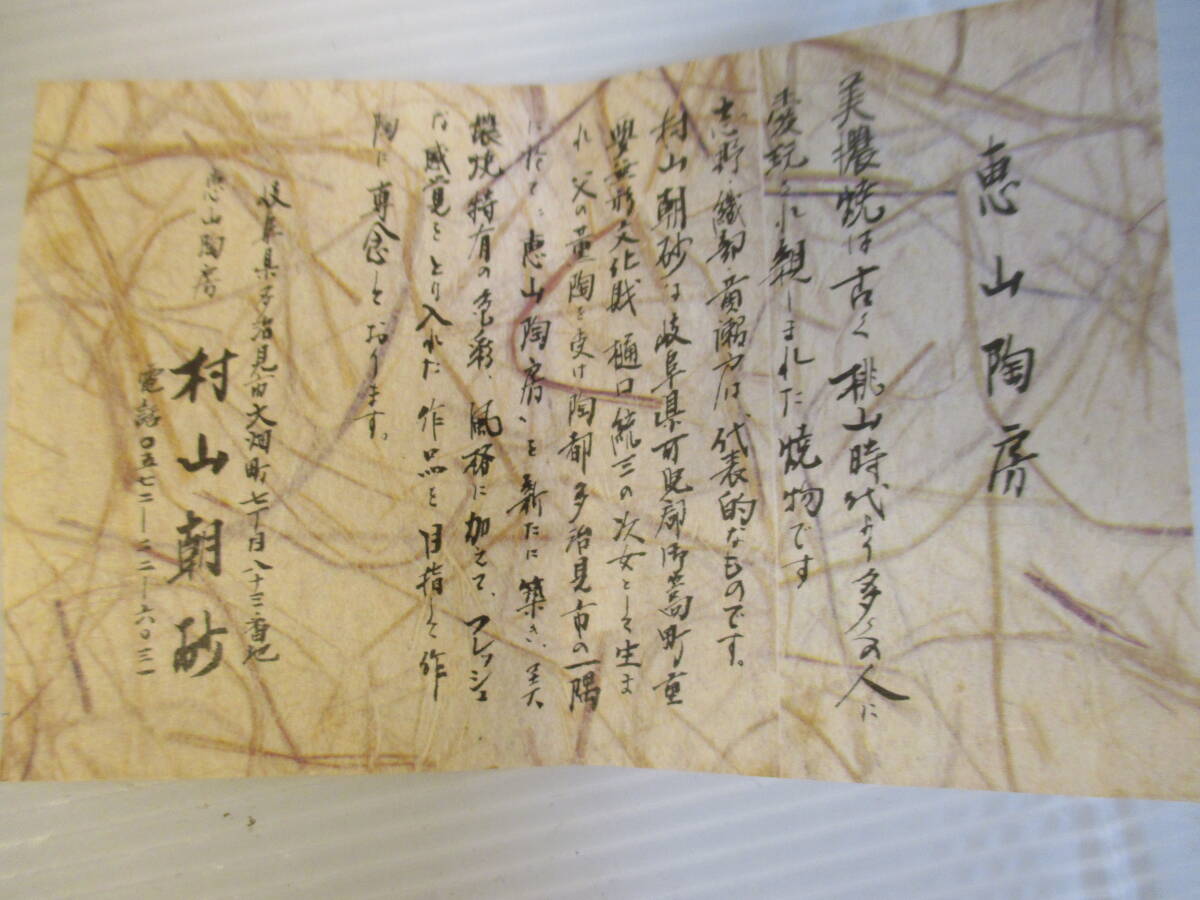 恵山陶房
美濃焼は古く桃山時代より多くの人に
愛玩され親しまれた焼物です
志野織部黄瀬戸は、代表的なものです。
村山朝砂は岐阜県可児郡御嵩町重
要無形文化財樋口 三の次女として生ま
れ父の薫陶を受け陶都多治見市の一隅
にて、恵山陶房、を新たに築き、美
濃焼特有の色彩、風格に加えて、フレッシュ
な感覚をとり入れた作品を目指して作
陶に専念しております。
岐阜県多治見市大畑町七丁目八十三番地
恵山陶房 村山朝砂
電話〇五七二―二二―六〇三一